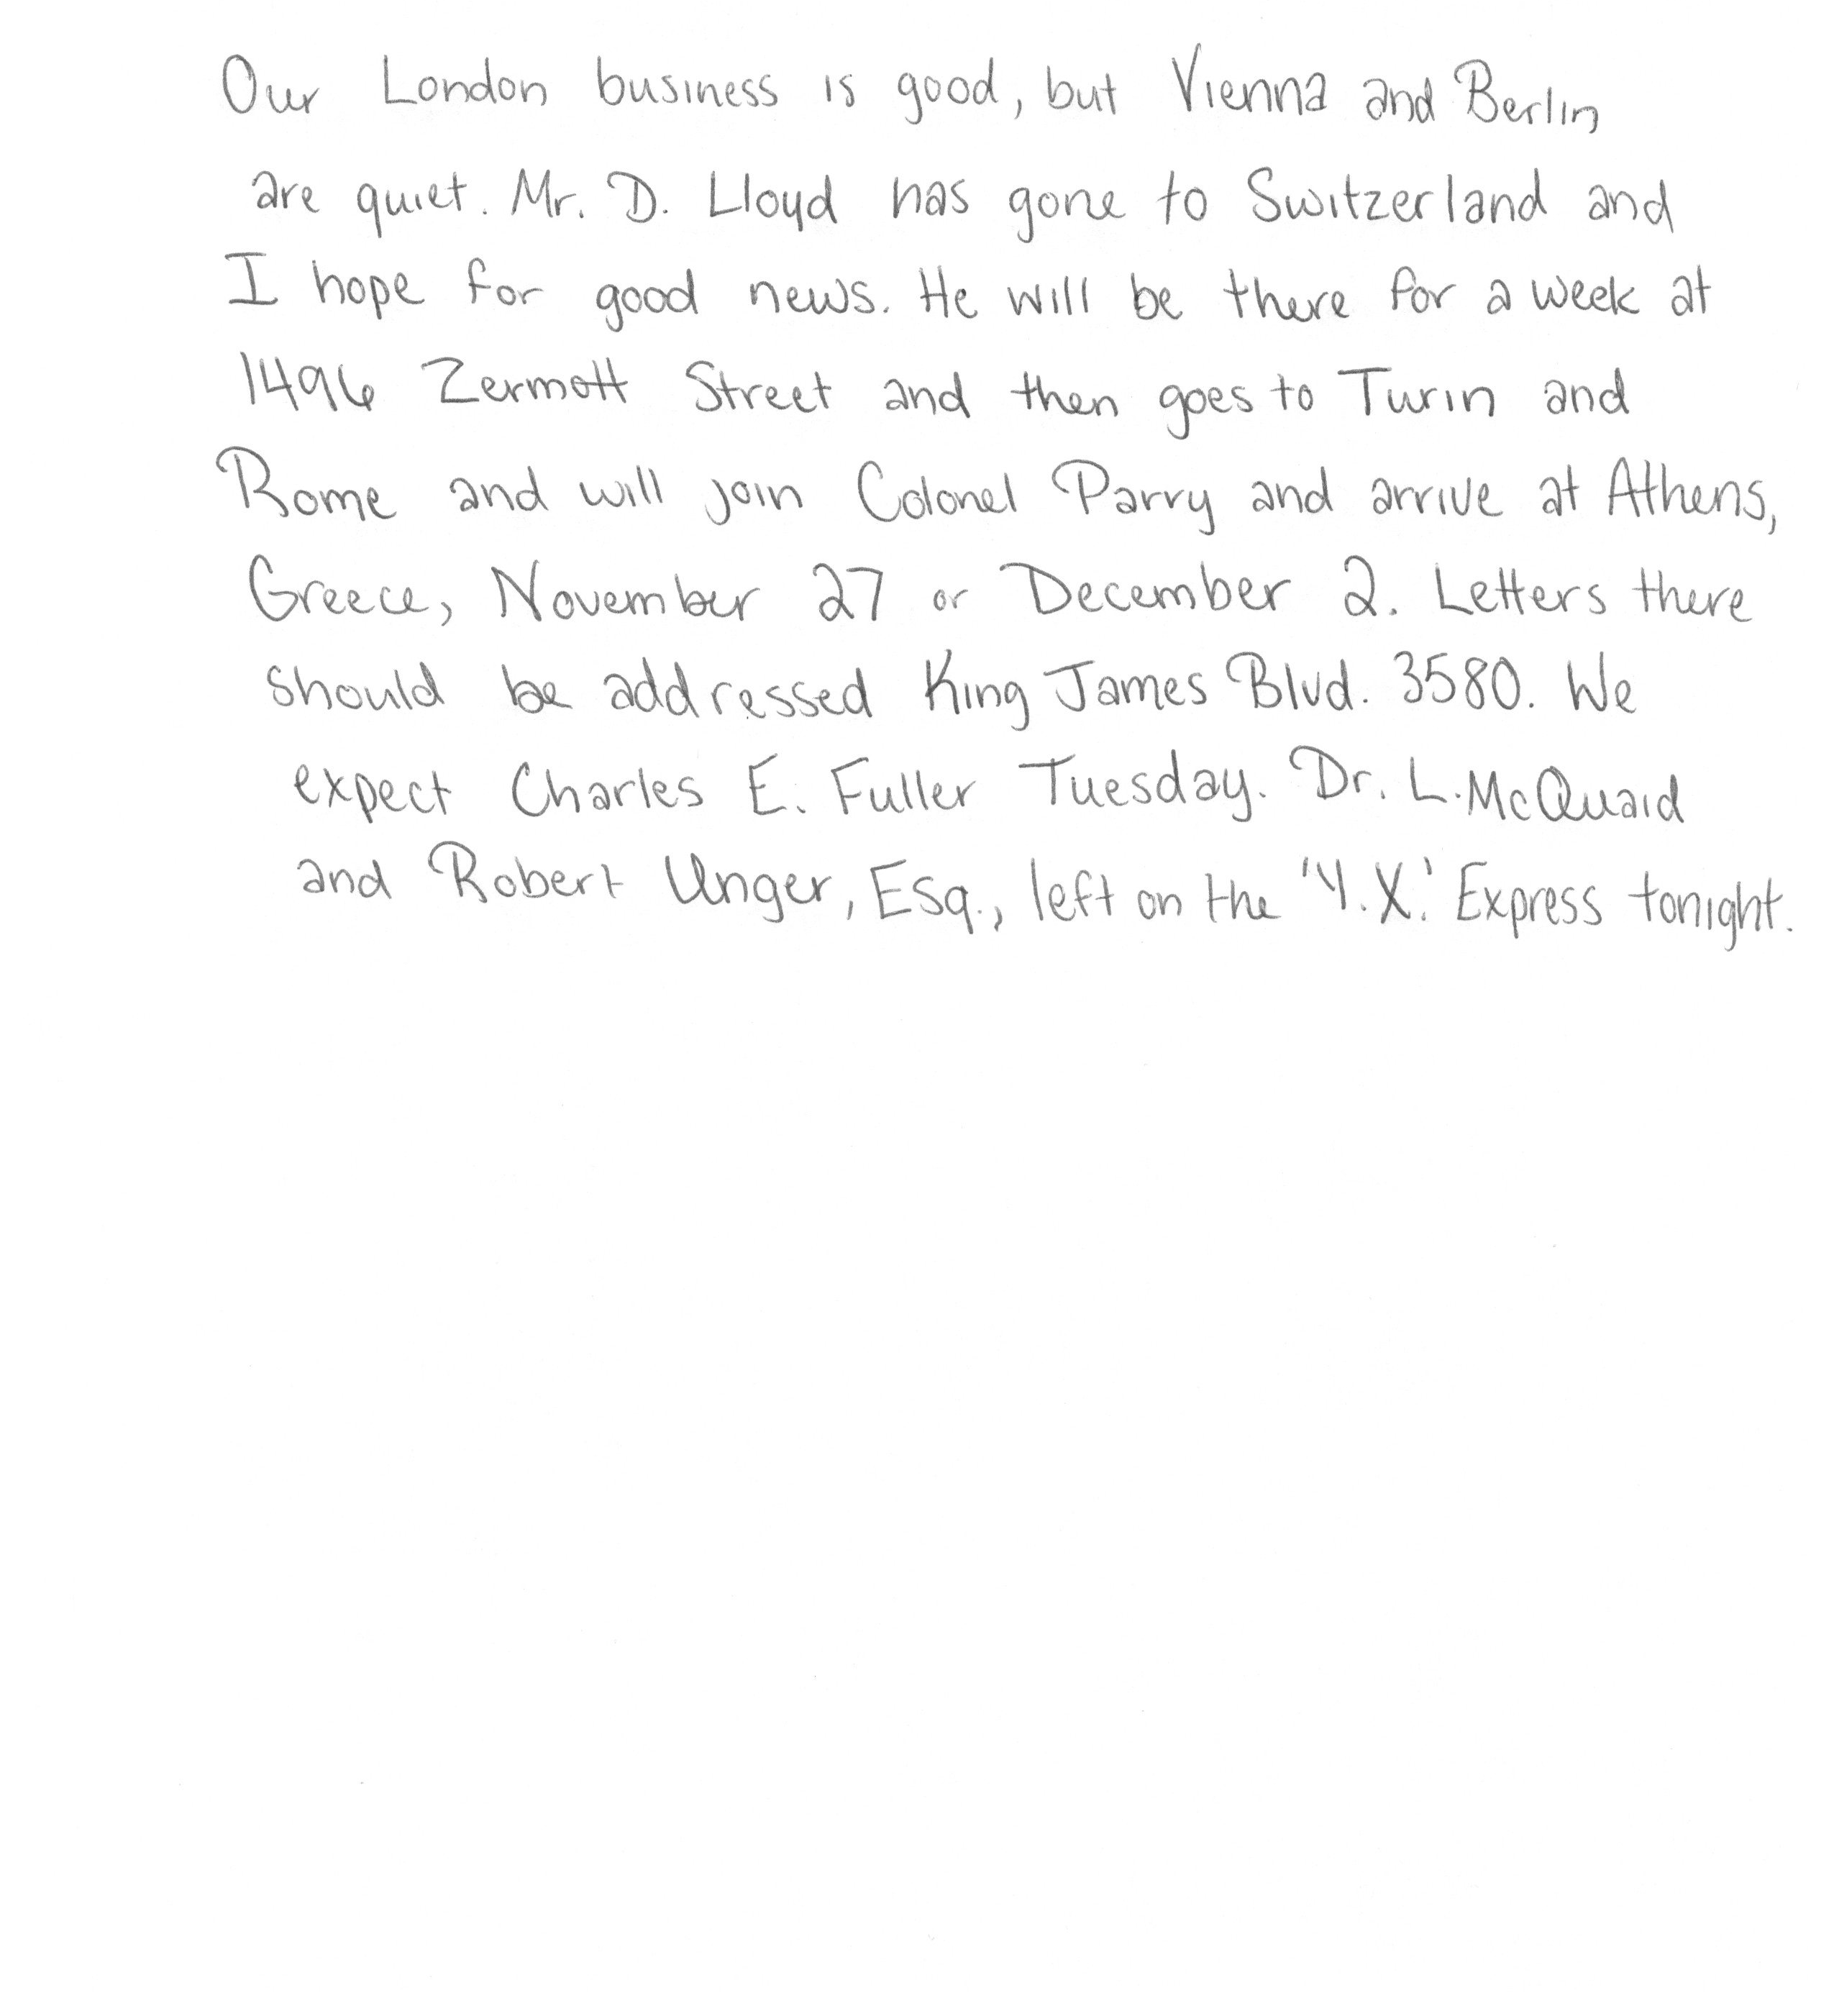 Our London business is good, but Vienna and Berlin
are quiet. Mr. D. Lloyd has gone to Switzerland and
I hope for good news. He will be there for a week at
1496 Zermott Street and then goes to Turin and
Rome and will join Colonel Parry and arrive at Athens,
Greece, November 27 or December 2. Letters there
should be addressed King James Blvd. 3580. We
expect Charles E. Fuller Tuesday. Dr. L. McQuaid
and Robert Unger, Esq., left on the 'Y.X.' Express tonight.